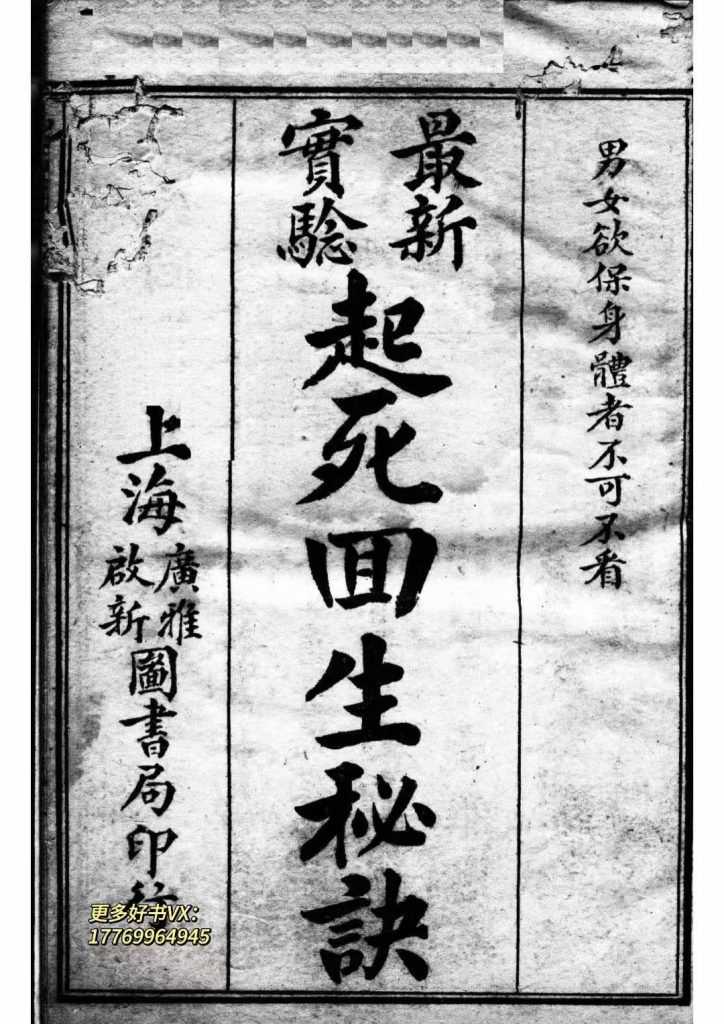 男女欲保身體者不可不看
最新
實驗
起死回生秘訣
上海
廣雅
啟新
圖書局印
更多好书VX：
17769964945